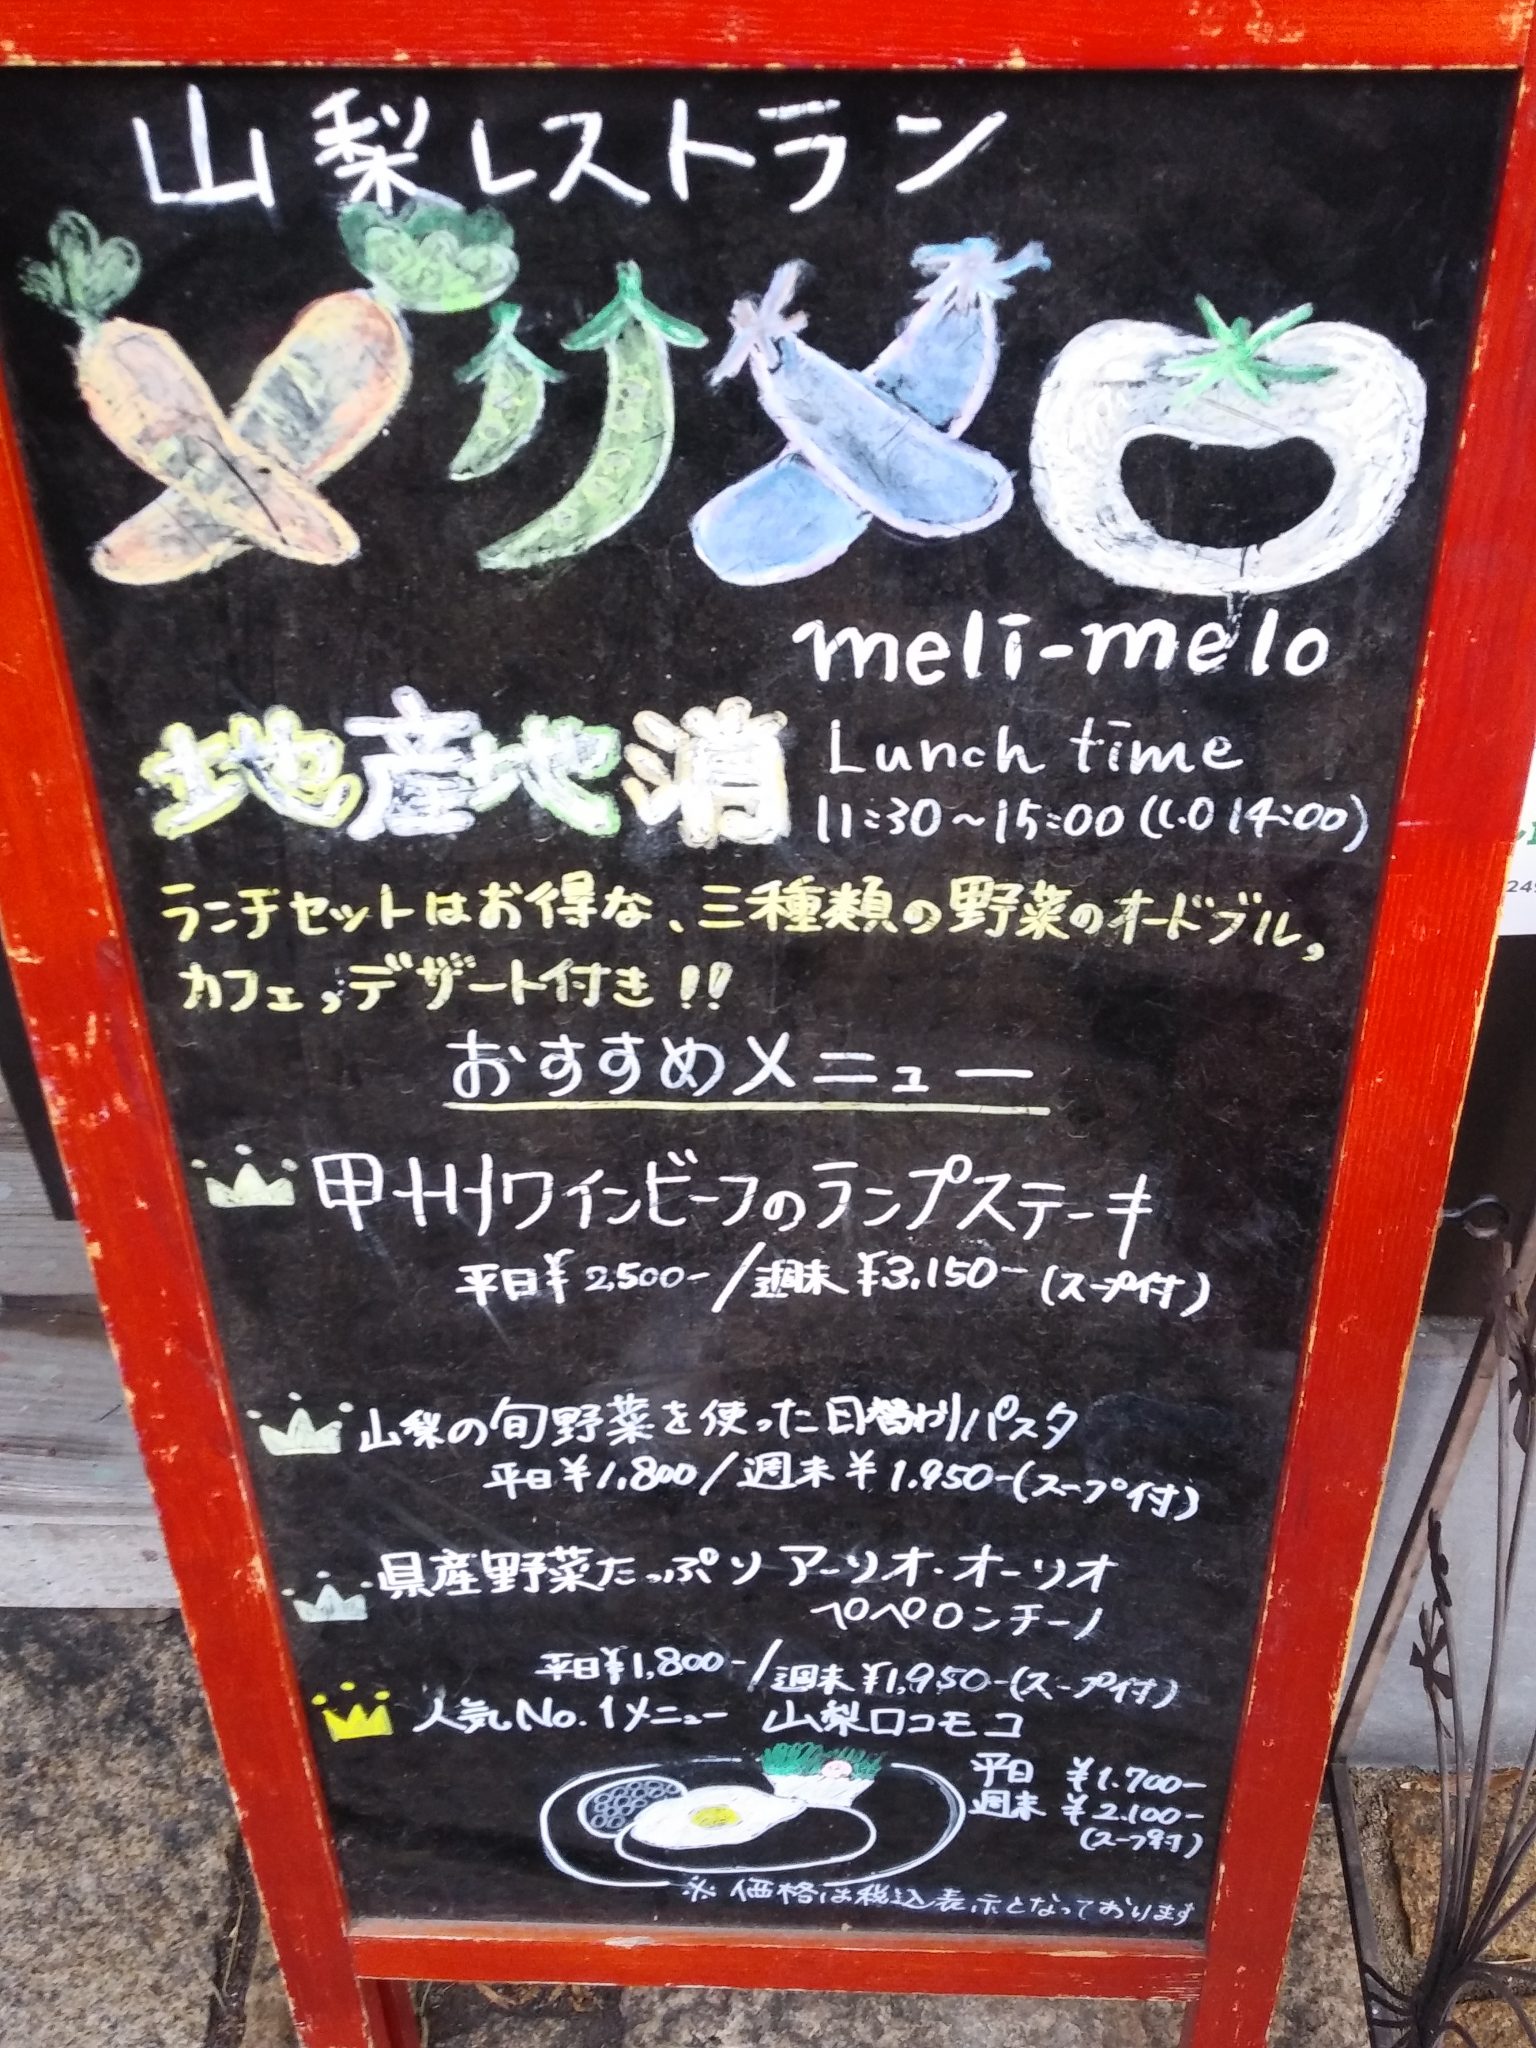 山梨レストラン
メリメロ
meli-melo
地産地消
Lunch time
11:30〜15:00 (L.O 14:00)
ランチセットはお得な、三種類の野菜のオードブル,
カフェ,デザート付き!!
おすすめメニュー
甲州ワインビーフのランプステーキ
平日¥2,500-/週末¥3,150-(スープ付)
山梨の旬野菜を使った日替わりパスタ
平日¥1,800/週末¥1,950-(スープ付)
県産野菜たっぷり アーリオ・オーリオ
ペペロンチーノ
平日¥1,800-/週末¥1,950-(スープ付)
人気No.1メニュー 山梨ロコモコ
平日 ¥1,700-
週末 ¥2,100-
(スープ付)
※価格は税込表示となっております